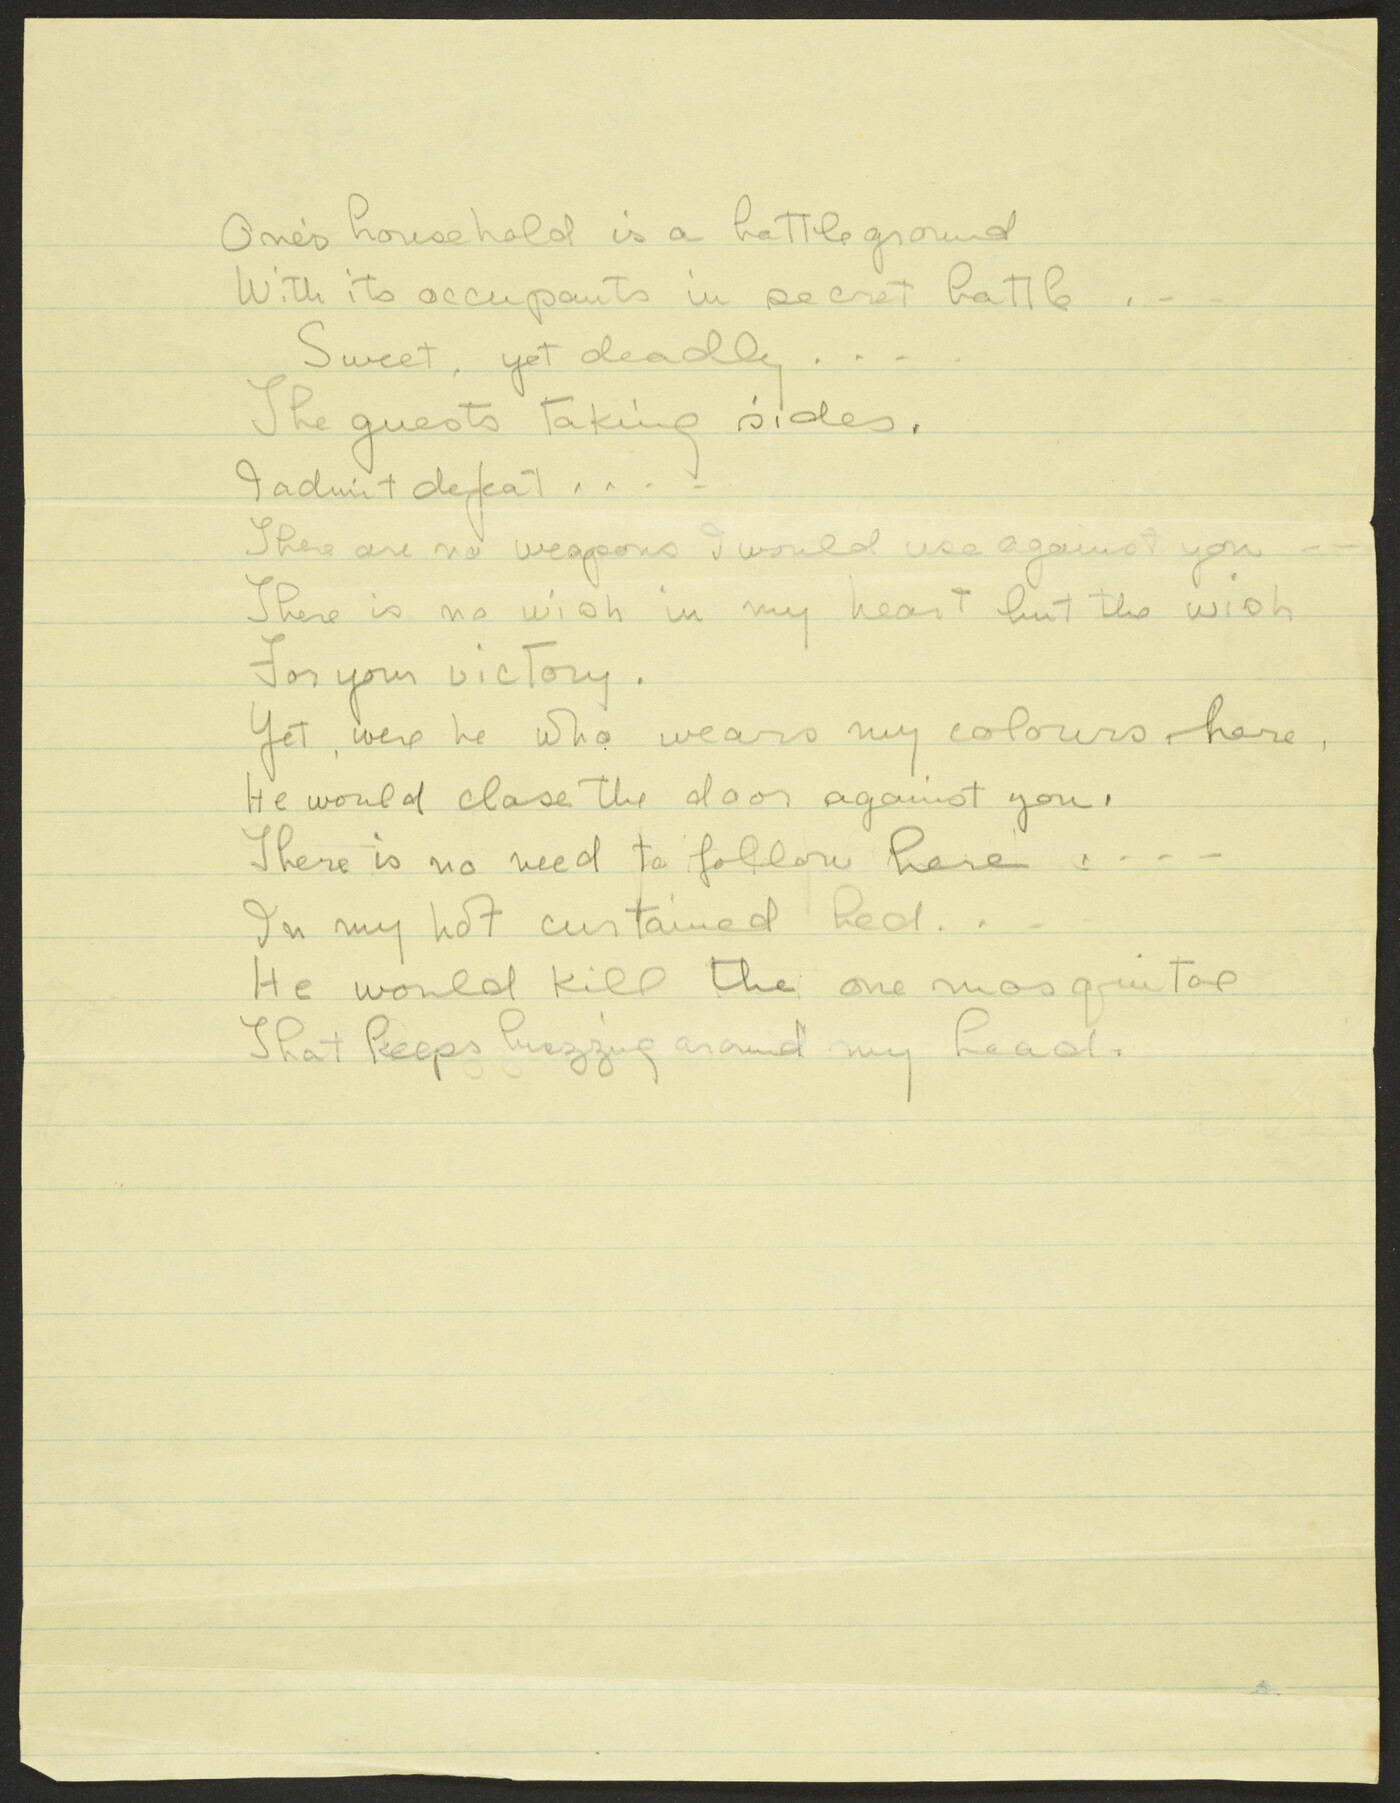 One's household is a battleground
With its occupants in secret battle . - -
Sweet, yet deadly . . - -
The guests taking sides.
I admit defeat . . . -
There are no weapons I would use against you - -
There is no wish in my heart but the wish
For your victory.
Yet, were he who wears my colours, here,
He would close the door against you.
There is no need to follow here . - - -
In my hot curtained bed. . -
He would kill the one mosquitoe
That keeps buzzing around my head.